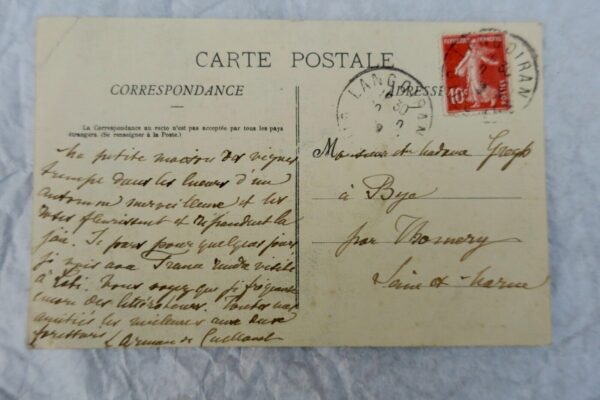 CARTE POSTALE
CORRESPONDANCE
ADRESSE
La Correspondance au recto n'est pas acceptée par tous les pays
étrangers. (Se renseigner à la Poste.)
Ma petite maison des vignes
trempe dans les lueurs d'un
automne merveilleux et les
roses fleurissent et répandent la
joie. Je pars pour quelques jours
rendre visite
à Loti. Vous voyez que je fréquente
encore des littérateurs. Toutes nos
amitiés les meilleures aux deux
Monsieur et madame
à Bye
par Thomery
Seine et Marne
LANGOIRAN
10c